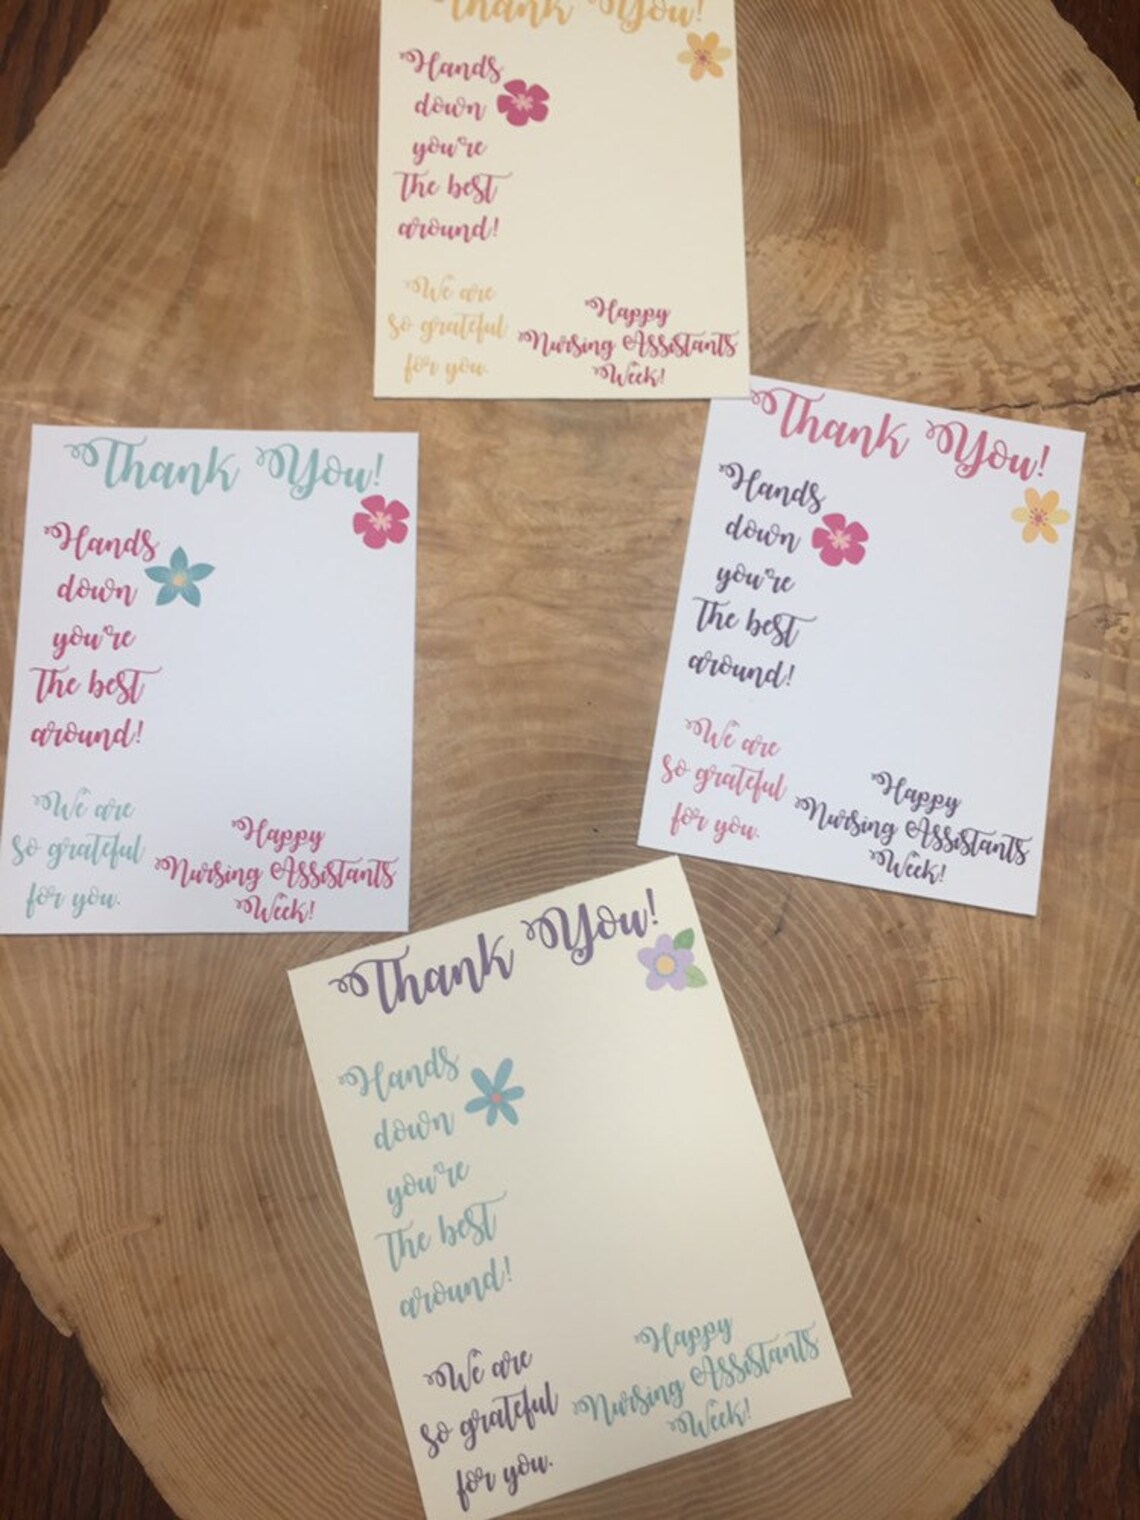 Thank You!
Hands
down
you're
the best
around!
We are
so grateful
for you.
Happy
Nursing Assistants
Week!
Thank You!
Hands
down
you're
the best
around!
We are
so grateful
for you.
Happy
Nursing Assistants
Week!
Thank You!
Hands
down
you're
the best
around!
We are
so grateful
for you.
Happy
Nursing Assistants
Week!
Thank You!
Hands
down
you're
the best
around!
We are
so grateful
for you.
Happy
Nursing Assistants
Week!